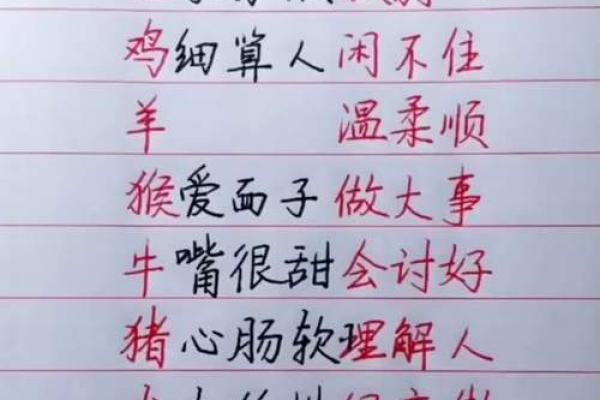 鸡细算人闲不住
羊 温柔顺
猴爱面子做大事
牛嘴很甜会讨好
猪心肠软理解人